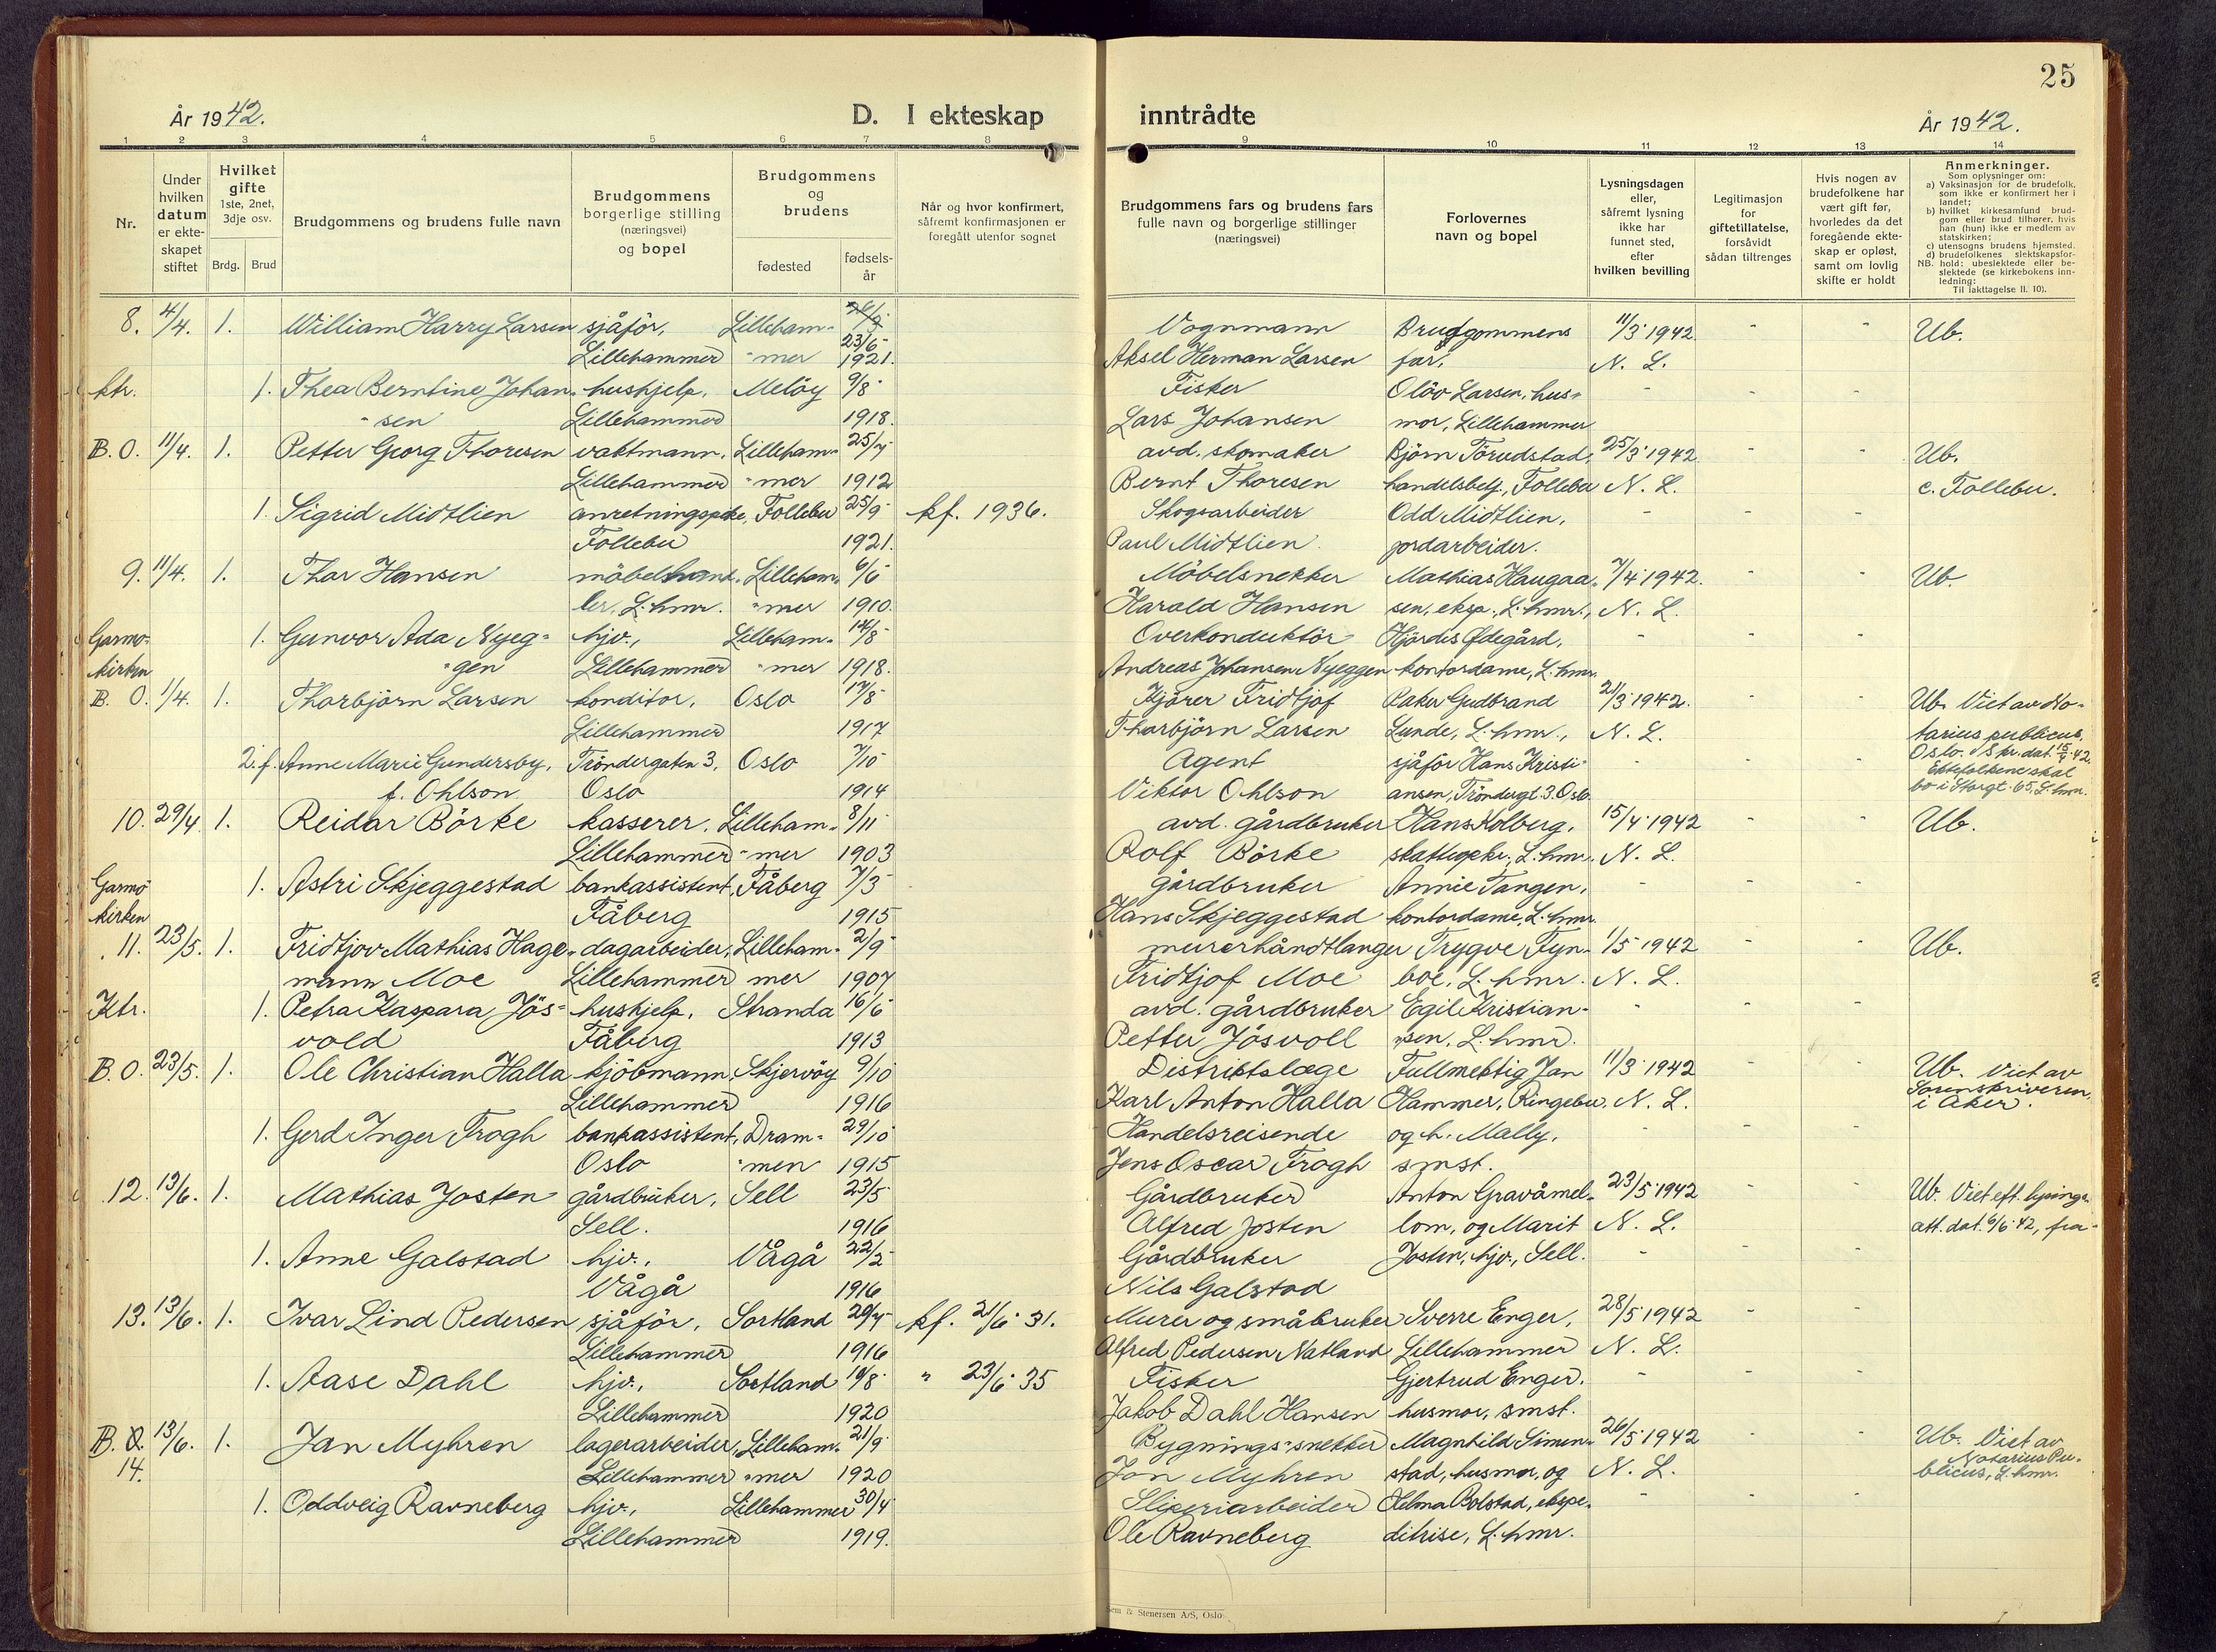 25
År 1942.
D. I ekteskap inntrådte
År 1942.
1 2 3 4 5 6 7 8 9 10 11 12 13 14
Nr.
Under hvilken datum er ekteskapet stiftet
Hvilket gifte 1ste, 2net, 3dje osv.
Brdg. Brud
Brudgommens og brudens fulle navn
Brudgommens borgerlige stilling (næringsvei) og bopel
Brudgommens og brudens
fødested
fødsels-år
Når og hvor konfirmert, såfremt konfirmasjonen er foregått utenfor sognet
Brudgommens fars og brudens fars fulle navn og borgerlige stillinger (næringsvei)
Forlovernes navn og bopel
Lysningsdagen eller, såfremt lysning ikke har funnet sted, efter hvilken bevilling
Legitimasjon for giftetillatelse, forsåvidt sådan tiltrenges
Hvis nogen av brudefolkene har vært gift før, hvorledes da det foregående ekteskap er opløst, samt om lovlig skifte er holdt
Anmerkninger.
Som oplysninger om:
a) Vaksinasjon for de brudefolk, som ikke er konfirmert her i landet;
b) hvilket kirkesamfund brudgom eller brud tilhører, hvis han (hun) ikke er medlem av statskirken;
c) utensogns brudens hjemsted.
d) brudefolkenes slektskapsforhold: ubeslektede eller beslektede (se kirkebokens innledning:
NB.
Til iakttagelse II. 10).
8. 4/4. 1. William Harry Larsen sjåför, Lilleham- Vognmann Brudgommens 11/3 1942 - - Ub.
Lillehammer -mer 23/6 1921. Aksel Herman Larsen far, N. L.
ktr. 1. Thea Berntine Johan- hushjelp, Melöy 9/8 Fisker Olöv Larsen, hus- - - -
-sen Lillehammer 1918. Lars Johansen mor, Lillehammer
B. O. 11/4. 1. Petter Georg Thoresen vaktmann, Lilleham- 25/7 avd. skomaker Björn Törudstad, 25/3 1942 - - Ub.
Lillehammer -mer 1912 Bernt Thoresen handelsbetj., Follebu N. L. c. Follebu.
1. Sigrid Midtlien anretningspike, Follebu 25/9 kf. 1936. Skogsarbeider Odd Midtlien, - - -
Follebu 1921. Paul Midtlien jordarbeider.
9. 11/4. 1. Thor Hansen möbelhand- Lilleham- 6/6 Möbelsnekker Mathias Haugaa- 7/4 1942. - - Ub.
ler, L.hmr. -mer 1910. Harald Hansen sen, eksp., L.hmr., N. L.
Garmo- 1. Gunvor Ada Nyeg- hjv., Lilleham- 14/8 Overkonduktör Hjördis Ødegård, - - -
kirken -gen Lillehammer -mer 1918. Andreas Johansen Nyeggen kontordame, L.hmr.
B. O. 1/4. 1. Thorbjörn Larsen konditor, Oslo 17/8 Kjörer Fridtjof Baker Gudbrand 21/3 1942. - - Ub. Viet av No-
Lillehammer 1917 Thorbjörn Larsen Lunde, L.hmr., N. L. tarius publicus,
2. f. Anne Marie Gundersby, Tröndergaten 3, Oslo 7/10 Agent sjåför Hans Kristi- - - - Oslo.
f. Ohlson Oslo 1914 Viktor Ohlson ansen, Tröndergt. 3. Oslo. Ektefolkene skal
bo i Storgt. 65, L.hmr.
10. 29/4 1. Reidar Börke kasserer, Lilleham- 8/11 avd. gårdbruker Hans Kolberg, 15/4 1942 - - Ub.
Lillehammer -mer 1903 Rolf Börke L.hmr. N. L.
Garmo- 1. Astri Skjeggestad bankassistent, Fåberg 7/3 gårdbruker Annie Tangen, - - -
kirken Fåberg 1915 Hans Skjeggestad kontordame, L.hmr.
11. 23/5. 1. Fridtjov Mathias Hage- dagarbeider, Lilleham- 2/9 murerhåndtlanger Trygve Fyn- 1/5 1942 - - Ub.
mann Moe Lillehammer mer 1907 Fridtjof Moe boe, L.hmr. N. L.
Ktr. 1. Petra Kaspara Jös- hushjelp, Stranda 16/6 avd. gårdbruker Egil Kristian- - - -
vold Fåberg 1913 Petter Jösvoll sen, L.hmr.
B. O. 23/5. 1. Ole Christian Halla kjöbmann, Skjervöy 9/10 Distriktslæge Fullmektig Jan 11/3 1942 - - Ub. Viet av
Lillehammer 1916 Karl Anton Halla Hammer, Ringebu, N. L. Sorenskriveren
i Aker.
1. Gerd Inger Frogh bankassistent, Dram- 29/10 Handelsreisende og h. Mally, - - -
Oslo -men 1915 Jens Oscar Frogh smst.
12. 13/6. 1. Mathias Josten gårdbruker, Sell 23/5 Gårdbruker Anton Gravåmel- 23/5 1942 - - Ub. Viet eft. lysings-
Sell. 1916 Alfred Josten lom, og Marit N. L. att. dat. 6/6 42, fra-
1. Anne Galstad hjv., Vågå 22/2 Gårdbruker Josten, hjv., Sell. - - -
Vågå 1916 Nils Galstad
13. 13/6. 1. Ivar Lind Pedersen sjåför, Sortland 20/4 kf. 21/6 31. Murer og småbruker Sverre Enger, 28/5 1942 - -
Lillehammer 1916 Alfred Pedersen Natland Lillehammer N. L.
1. Aase Dahl hjv., Sortland 10/8 " 23/6 35 Fisker Gjertrud Enger, - - -
Lillehammer 1920 Jakob Dahl Hansen husmor, smst.
B. O. 13/6. 1. Jan Myhren lagerarbeider, Lilleham- 21/9 Bygnings-snekker Magnhild Simen- 26/5 1942 - - Ub. Viet av
14. Lillehammer -mer 1920 Jon Myhren stad, husmor, og N. L. Notarius Pu-
blicus, L.hmr.
1. Oddveig Ravneberg hjv., Lillehammer 30/4 Sliperiarbeider Helma Bolstad, ekspe- - - -
Lillehammer 1919. Ole Ravneberg ditrise, L.hmr.
Sem & Stenersen A/S, Oslo